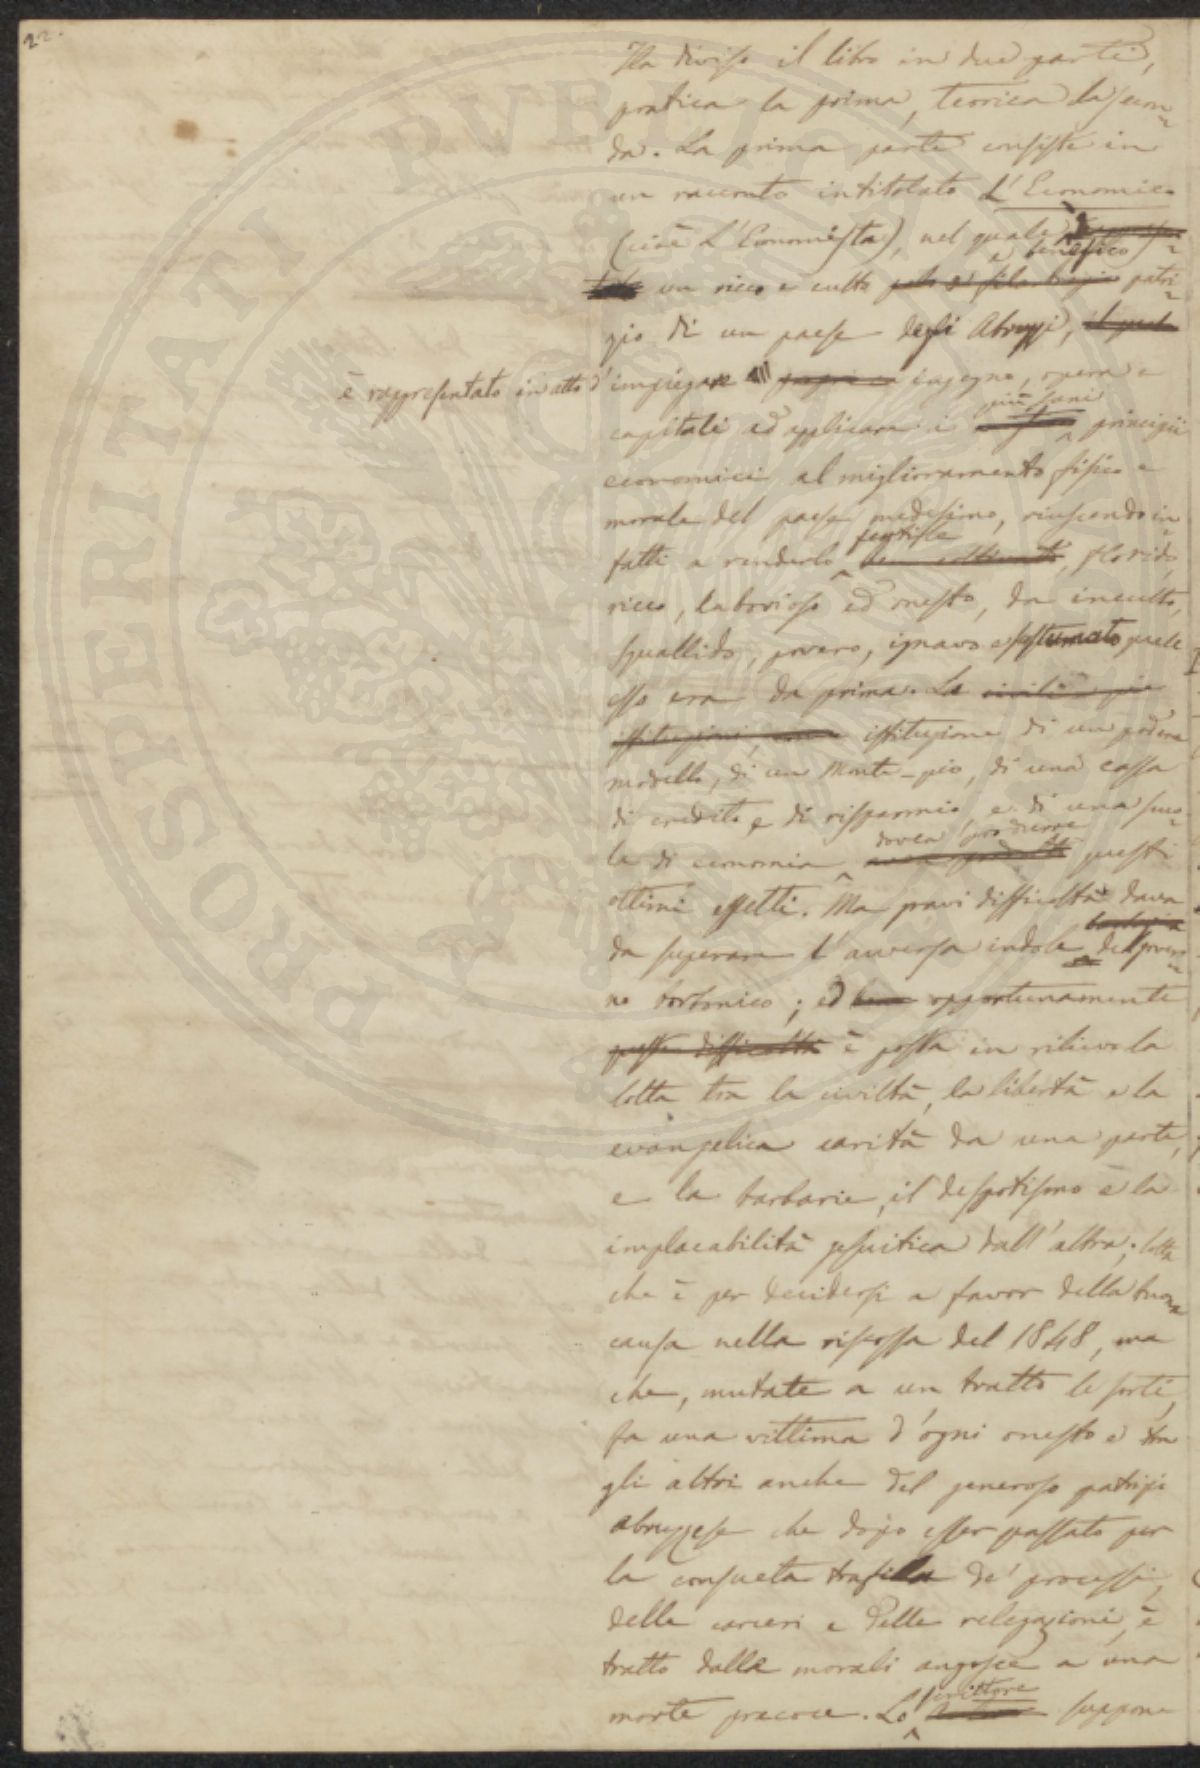 22.
Ha diviso il libro in due parti,
pratica la prima, teorica la secon-
da. La prima parte consiste in
un racconto intitolato L'Economico
(cioè L'Economista), nel quale
e benefico
un ricco e culto patri-
zio di un paese degli Abruzzi, il quale
è rappresentato in atto d'impiegare ingegno, opera e
più sani
capitali ad applicare i principii
economici al miglioramento fisico e
morale del paese medesimo, riuscendo in-
fertile
fatti a renderlo florido,
ricco, laborioso ed onesto, da inculto,
squallido, povero, ignavo e scostumato quale
esso era da prima. La
istituzioni, istituzione di un podere
modello, di un Monte-pio, di una cassa
di credito e di risparmio, e di una scuo-
dovea produrre
la di economia questi
ottimi effetti. Ma gravi difficoltà dava
da superare l'avversa indole del gover-
no borbonico; ed opportunamente
queste difficoltà è posta in rilievo la
lotta tra la civiltà, la libertà e la
evangelica carità da una parte,
e la barbarie, il despotismo e la
implacabilità gesuitica dall'altra; lotta
che è per decidersi a favor della buona
causa nella riscossa del 1848, ma
che, mutate a un tratto le sorti,
fa una vittima d'ogni onesto e tra
gli altri anche del generoso patrizio
abruzzese che dopo esser passato per
la consueta trafila de' processi,
delle carceri e delle relegazioni, è
tratto dalle morali angosce a una
scrittore
morte precoce. Lo suppone
PROSPERITATI PVBLICAE